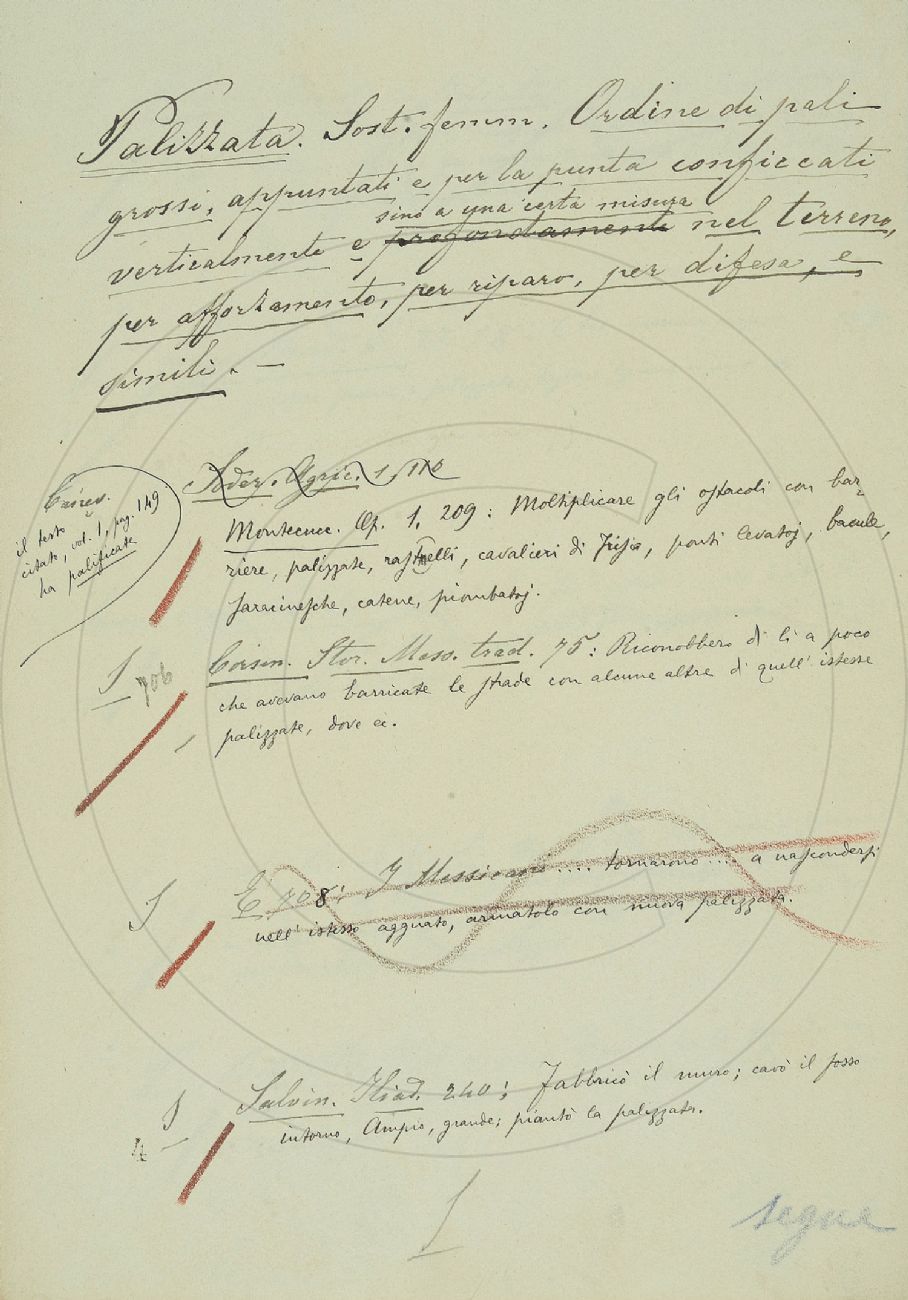 Palizzata. Sost. femm. Ordine di pali
grossi, appuntati e per la punta conficcati
sino a una certa misura
verticalmente e profondamente nel terreno,
per afforzamento, per riparo, per difesa, e
simili. —
Soder. Agric. 1, 110
Montecucc. Op. 1, 209: Moltiplicare gli ostacoli con bar-
riere, palizzate, rastelli, cavalieri di Frisia, ponti levatoj, bacule,
saracinesche, catene, piombatoj.
il testo
citato, vol. 1, pag. 149
ha palificate
S 706
Corsin. Stor. Mess. trad. 75: Riconobbero di lì a poco
che avevano barricate le strade con alcune altre di quell' istesse
palizzate, dove ec.
S
E 708: I Messicani .... tornarono ... a nascondersi
nell' istesso agguato, armatolo con nuova palizzata.
S
4
Salvin. Iliad. 240: Fabbricò il muro; cavò il fosso
intorno, Ampio, grande; piantò la palizzata.
S
segue